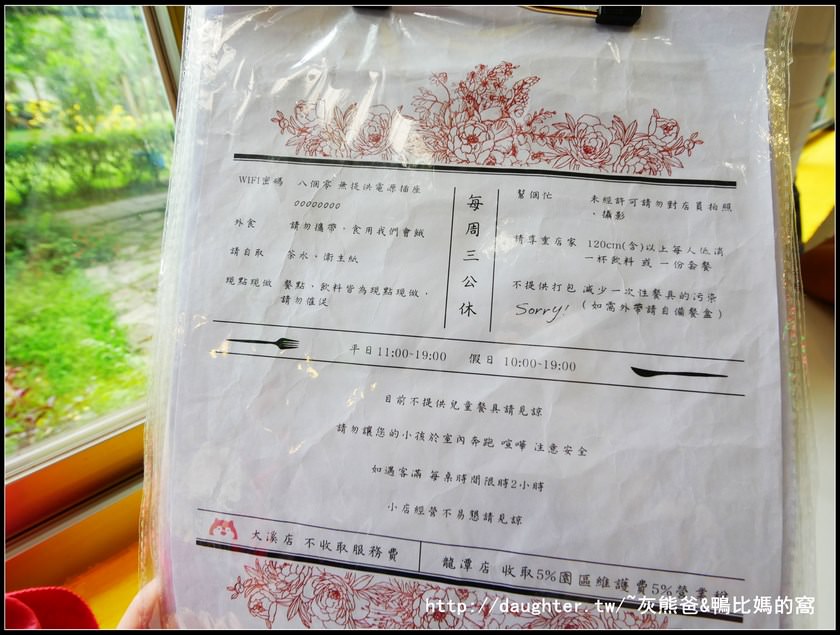 WIFI密碼 八個零 無提供電源插座
00000000
外食 請勿攜帶、食用我們會餓
請自取 茶水、衛生紙
現點現做 餐點、飲料皆為現點現做，
請勿催促
每周三公休
幫個忙 未經許可請勿對店員拍照
、攝影
請尊重店家 120cm(含)以上每人低消
一杯飲料 或 一份套餐
不提供打包 減少一次性餐具的污染
Sorry! (如需外帶請自備餐盒)
平日11:00~19:00 假日 10:00~19:00
目前不提供兒童餐具請見諒
請勿讓您的小孩於室內奔跑 喧嘩 注意安全
如遇客滿 每桌時間限時2小時
小店經營不易懇請見諒
大溪店 不收取服務費
龍潭店 收取5%園區維護費5%營業稅
http://daughter.tw/~灰熊爸&鴨比媽的窩